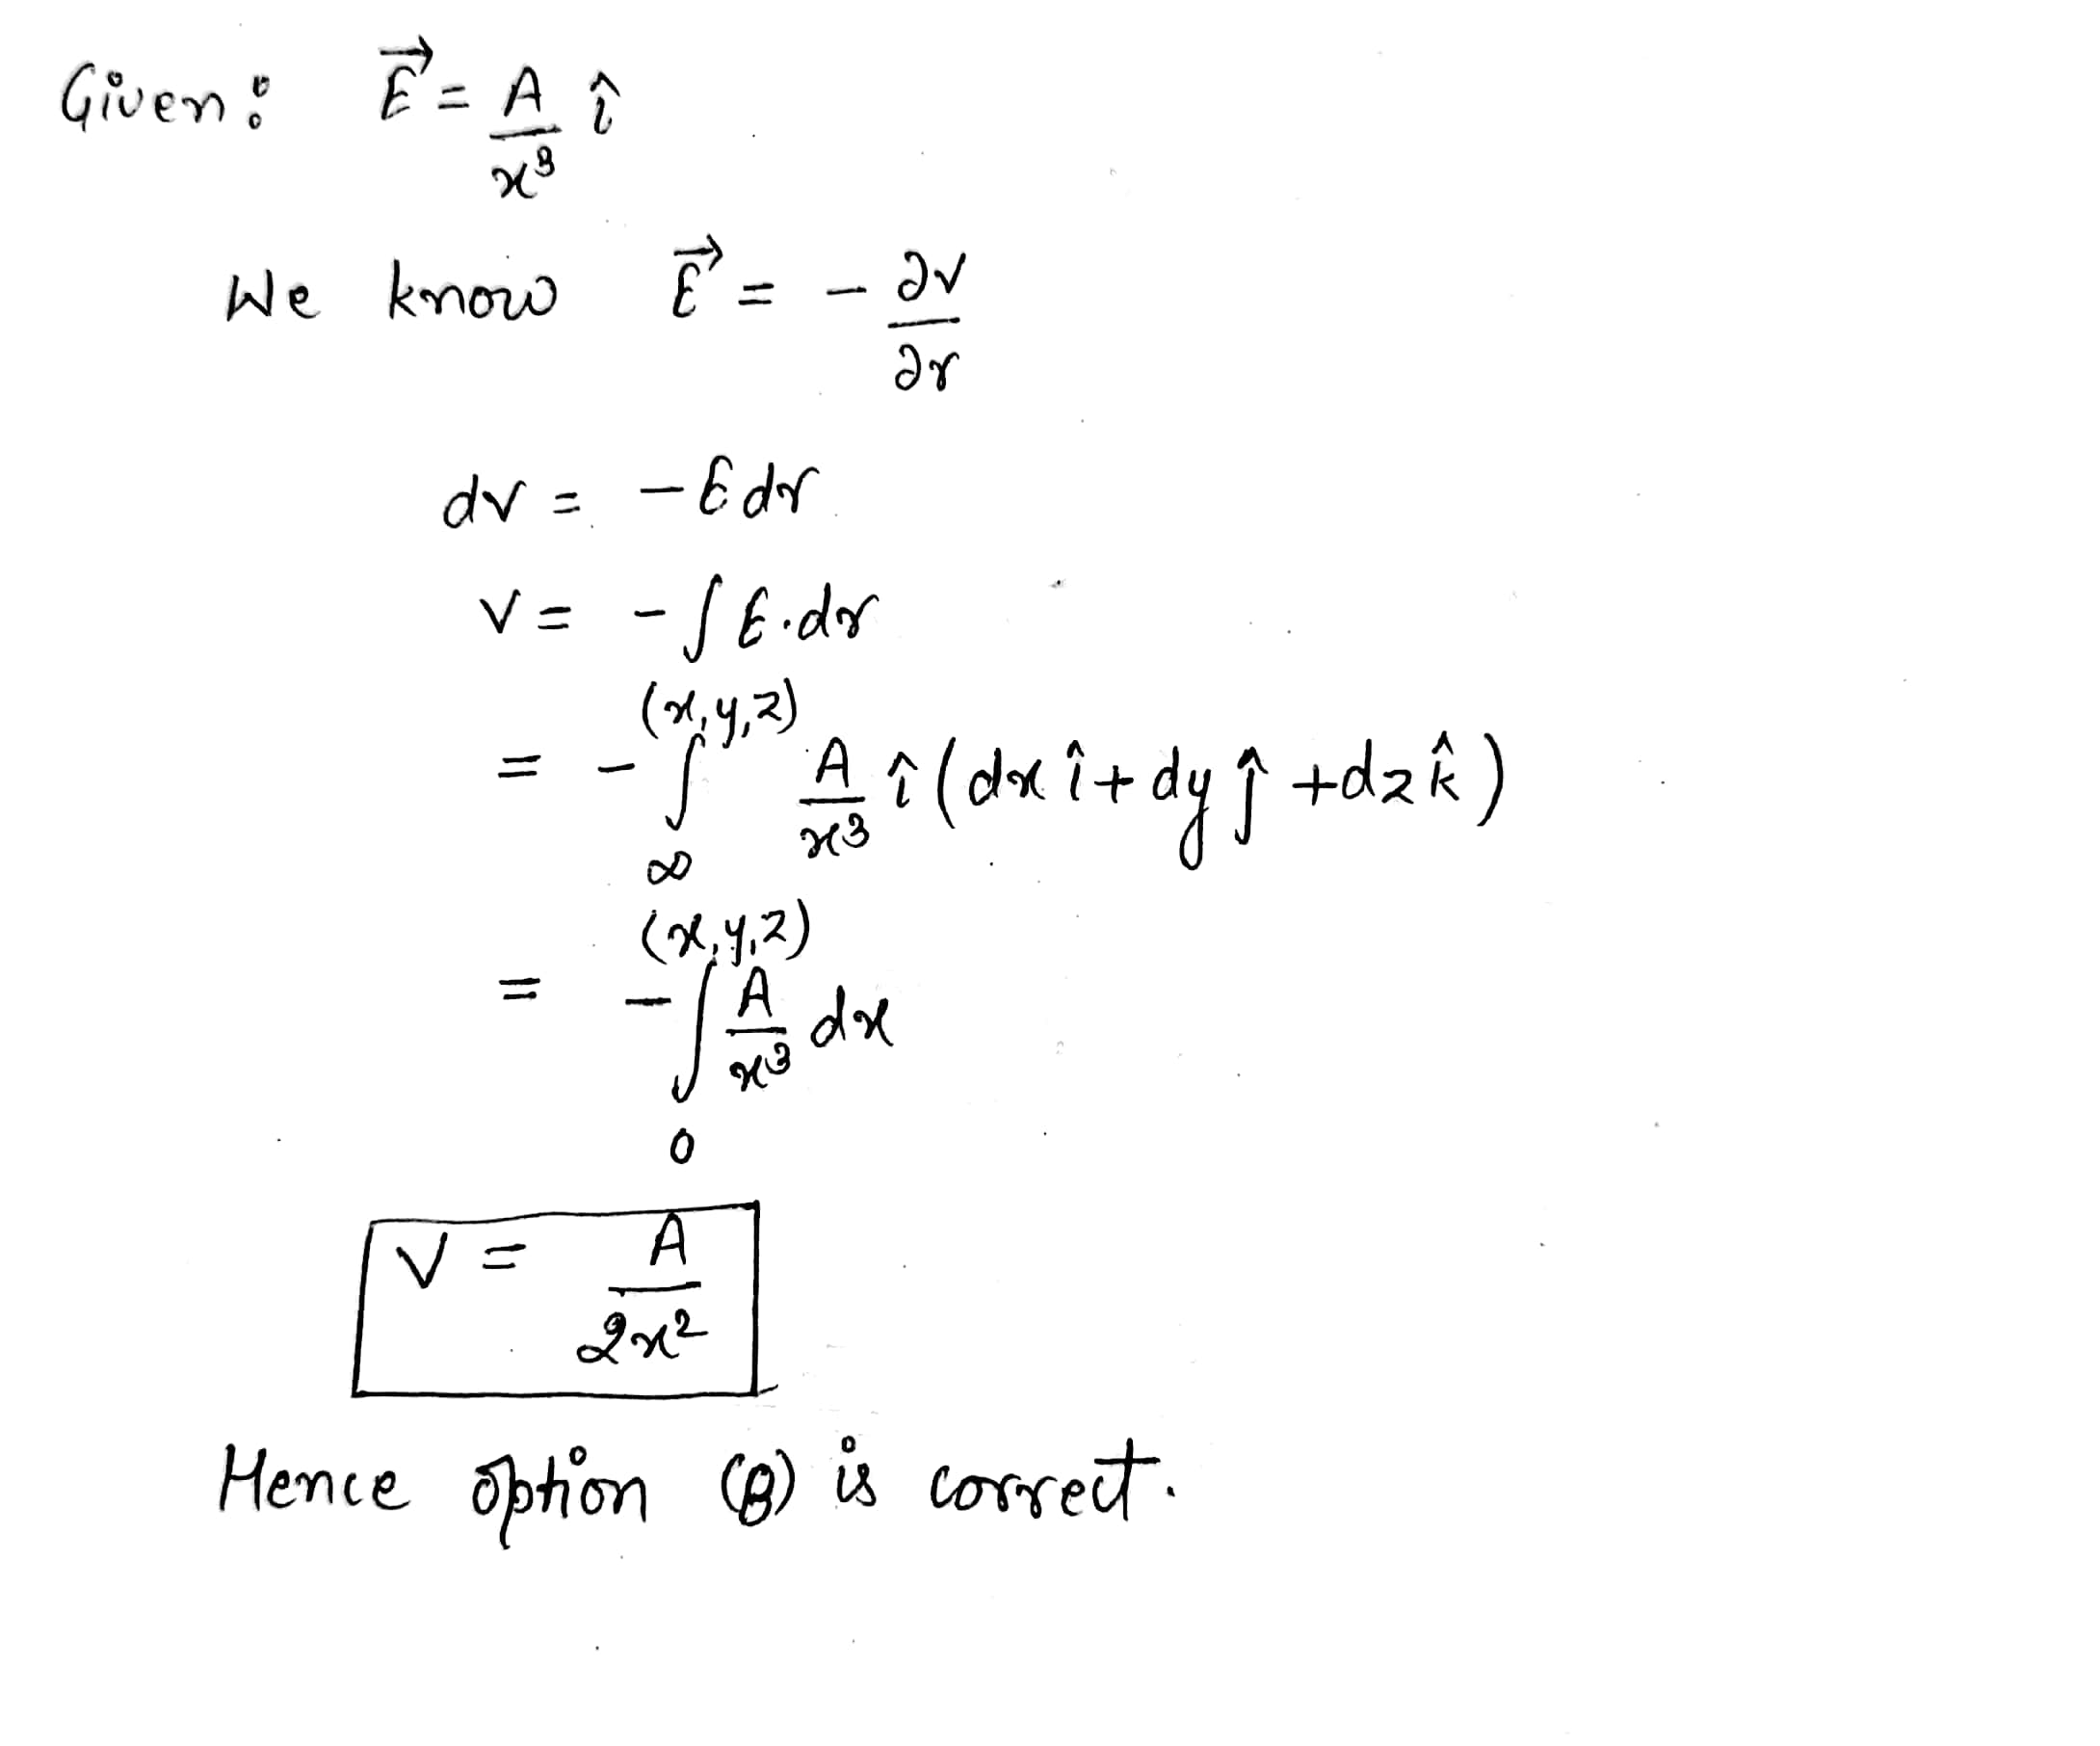 Given: $\vec{E} = \frac{A}{x^3} \hat{i}$
We know $\vec{E} = -\frac{\partial v}{\partial r}$
$dv = -E dr$
$V = -\int E \cdot dr$
$= -\int_{\infty}^{(x,y,z)} \frac{A}{x^3} \hat{i} (dx \hat{i} + dy \hat{j} + dz \hat{k})$
$= -\int_{0}^{(x,y,z)} \frac{A}{x^3} dx$
$V = \frac{A}{2x^2}$
Hence option (B) is correct.